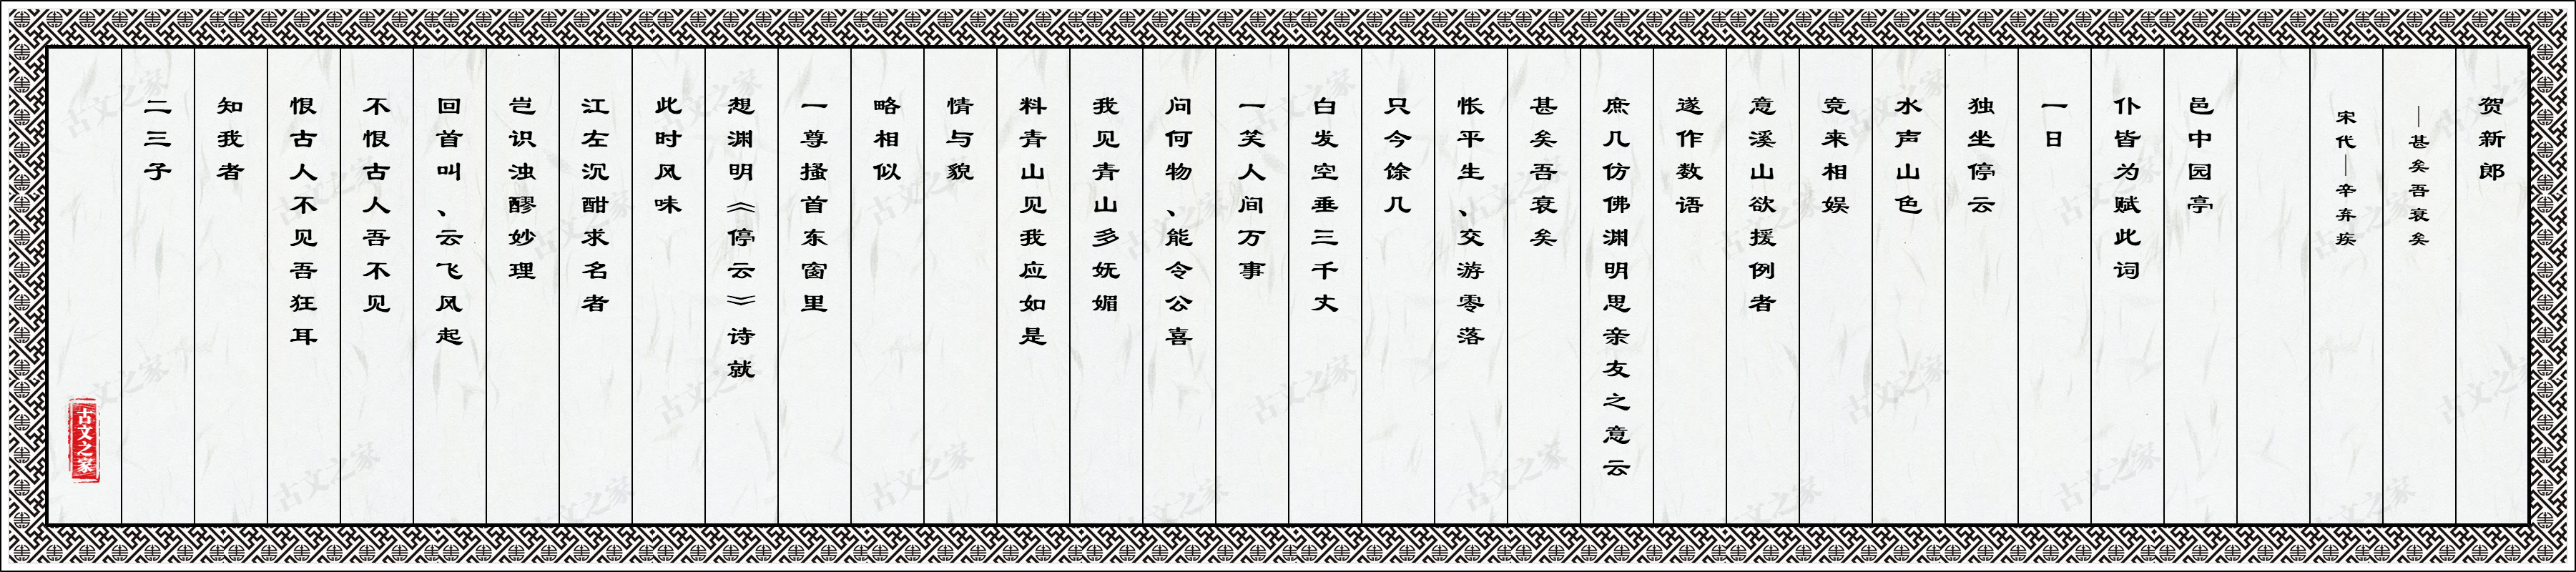 贺新郎
—甚矣吾衰矣
宋代—辛弃疾
邑中园亭
仆皆为赋此词
一日
独坐停云
水声山色
竞来相娱
意溪山欲援例者
遂作数语
庶几仿佛渊明思亲友之意云
甚矣吾衰矣
怅平生、交游零落
只今馀几
白发空垂三千丈
一笑人间万事
问何物、能令公喜
我见青山多妩媚
料青山见我应如是
情与貌
略相似
一尊搔首东窗里
想渊明《停云》诗就
此时风味
江左沉酣求名者
岂识浊醪妙理
回首叫、云飞风起
不恨古人吾不见
恨古人不见吾狂耳
知我者
二三子
古文之家